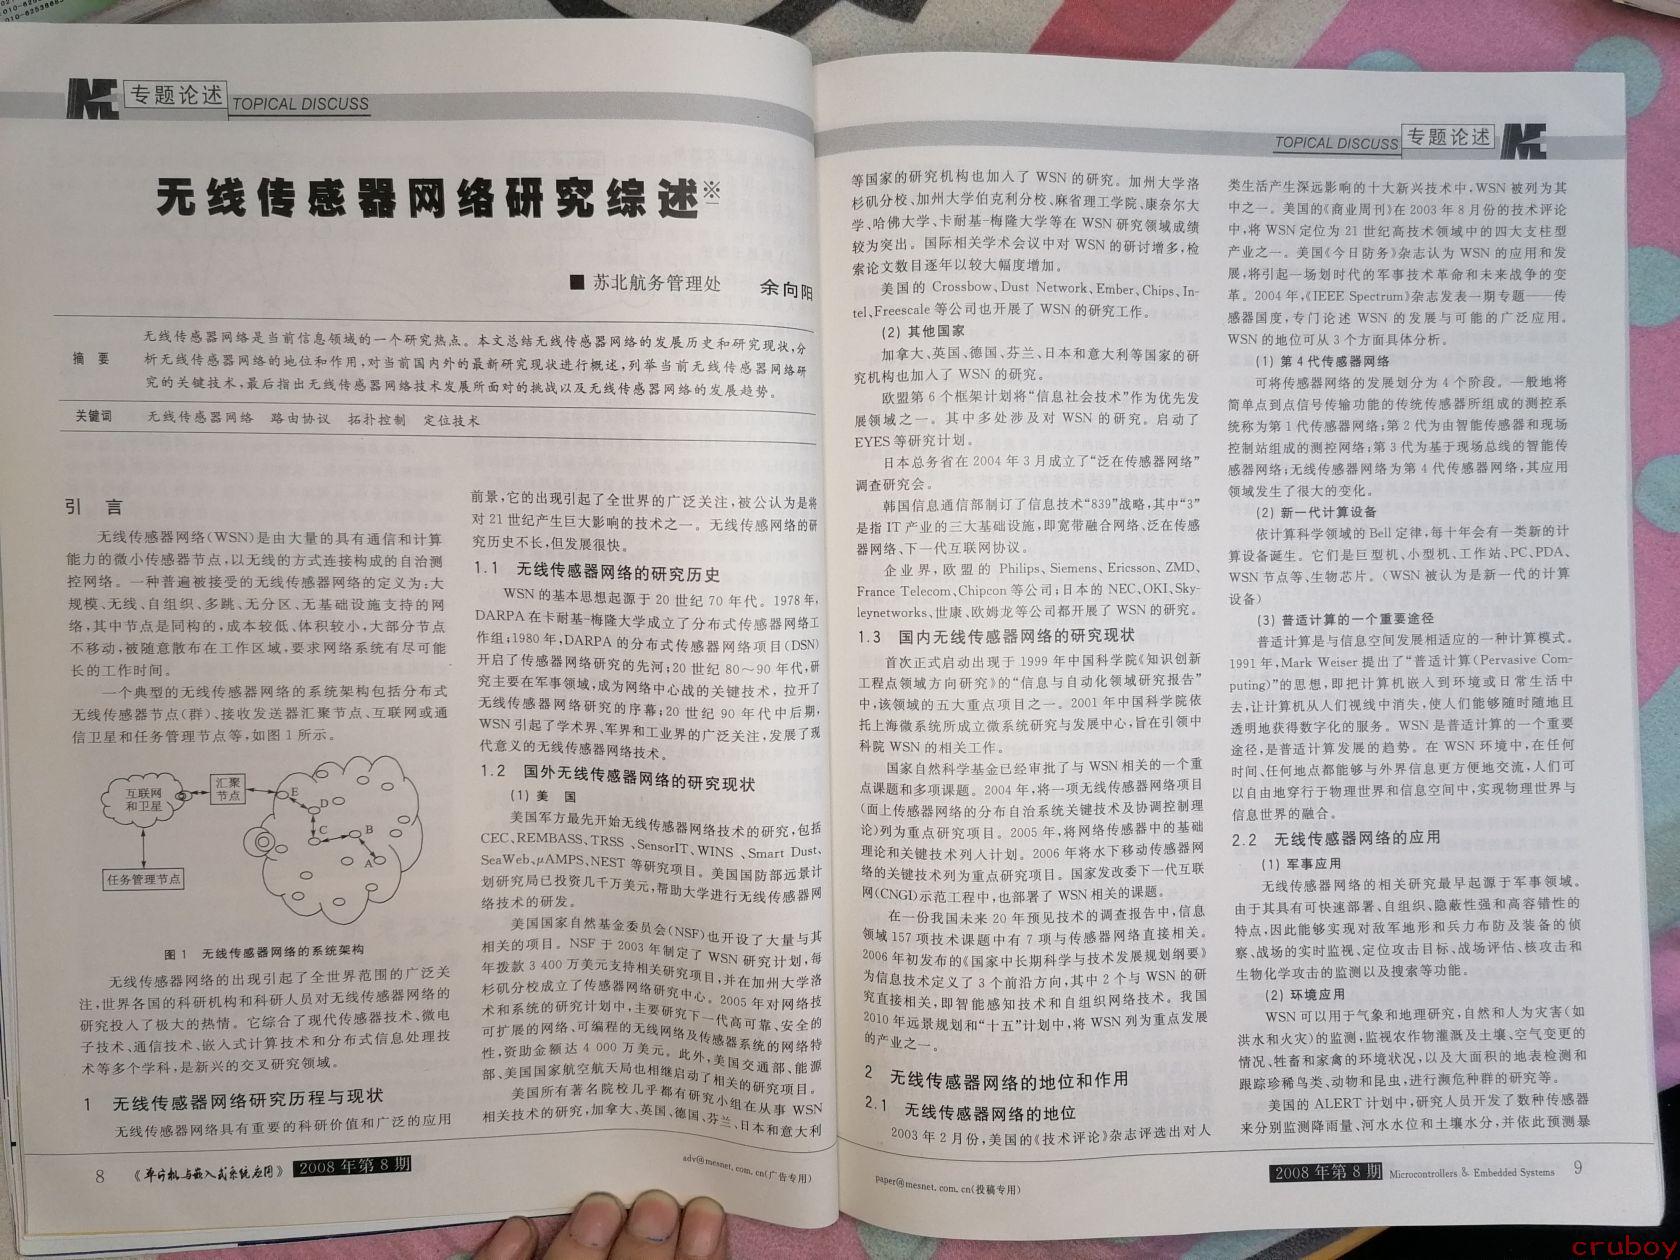 专题论述 TOPICAL DISCUSS
无线传感器网络研究综述※
■ 苏北航务管理处 余向阳
摘 要
无线传感器网络是当前信息领域的一个研究热点。本文总结无线传感器网络的发展历史和研究现状,分
析无线传感器网络的地位和作用,对当前国内外的最新研究现状进行概述,列举当前无线传感器网络研
究的关键技术,最后指出无线传感器网络技术发展所面对的挑战以及无线传感器网络的发展趋势。
关键词 无线传感器网络 路由协议 拓扑控制 定位技术
引 言
无线传感器网络(WSN)是由大量的具有通信和计算
能力的微小传感器节点,以无线的方式连接构成的自治测
控网络。一种普遍被接受的无线传感器网络的定义为:大
规模、无线、自组织、多跳、无分区、无基础设施支持的网
络,其中节点是同构的,成本较低、体积较小,大部分节点
不移动,被随意散布在工作区域,要求网络系统有尽可能
长的工作时间。
一个典型的无线传感器网络的系统架构包括分布式
无线传感器节点(群)、接收发送器汇聚节点、互联网或通
信卫星和任务管理节点等,如图1所示。
互联网
和卫星
汇聚
节点
任务管理节点
E
D
C
B
A
图1 无线传感器网络的系统架构
无线传感器网络的出现引起了全世界范围的广泛关
注,世界各国的科研机构和科研人员对无线传感器网络的
研究投入了极大的热情。它综合了现代传感器技术、微电
子技术、通信技术、嵌入式计算技术和分布式信息处理技
术等多个学科,是新兴的交叉研究领域。
1 无线传感器网络研究历程与现状
无线传感器网络具有重要的科研价值和广泛的应用
前景,它的出现引起了全世界的广泛关注,被公认为是将
对21世纪产生巨大影响的技术之一。无线传感网络的研
究历史不长,但发展很快。
1.1 无线传感器网络的研究历史
WSN的基本思想起源于20世纪70年代。1978年,
DARPA在卡耐基-梅隆大学成立了分布式传感器网络工
作组;1980年,DARPA的分布式传感器网络项目(DSN)
开启了传感器网络研究的先河;20世纪80～90年代,研
究主要在军事领域,成为网络中心战的关键技术,拉开了
无线传感器网络研究的序幕;20世纪90年代中后期,
WSN引起了学术界、军界和工业界的广泛关注,发展了现
代意义的无线传感器网络技术。
1.2 国外无线传感器网络的研究现状
(1) 美 国
美国军方最先开始无线传感器网络技术的研究,包括
CEC、REMBASS、TRSS 、SensorIT、WINS 、Smart Dust、
SeaWeb、μAMPS、NEST等研究项目。美国国防部远景计
划研究局已投资几千万美元,帮助大学进行无线传感器网
络技术的研发。
美国国家自然基金委员会(NSF)也开设了大量与其
相关的项目。NSF于2003年制定了WSN研究计划,每
年拨款3 400万美元支持相关研究项目,并在加州大学洛
杉矶分校成立了传感器网络研究中心。2005年对网络技
术和系统的研究计划中,主要研究下一代高可靠、安全的
可扩展的网络、可编程的无线网络及传感器系统的网络特
性,资助金额达4 000万美元。此外,美国交通部、能源
部、美国国家航空航天局也相继启动了相关的研究项目。
美国所有著名院校几乎都有研究小组在从事WSN
相关技术的研究,加拿大、英国、德国、芬兰、日本和意大利
8 《单片机与嵌入式系统应用》 2008年第8期 adv@mesnet.com.cn(广告专用)
TOPICAL DISCUSS 专题论述
等国家的研究机构也加入了WSN的研究。加州大学洛
杉矶分校、加州大学伯克利分校、麻省理工学院、康奈尔大
学、哈佛大学、卡耐基-梅隆大学等在WSN研究领域成绩
较为突出。国际相关学术会议中对WSN的研讨增多,检
索论文数目逐年以较大幅度增加。
美国的Crossbow、Dust Network、Ember、Chips、In-
tel、Freescale等公司也开展了WSN的研究工作。
(2) 其他国家
加拿大、英国、德国、芬兰、日本和意大利等国家的研
究机构也加入了WSN的研究。
欧盟第6个框架计划将“信息社会技术”作为优先发
展领域之一。其中多处涉及对WSN的研究。启动了
EYES等研究计划。
日本总务省在2004年3月成立了“泛在传感器网络”
调查研究会。
韩国信息通信部制订了信息技术“839”战略,其中“3”
是指IT产业的三大基础设施,即宽带融合网络、泛在传感
器网络、下一代互联网协议。
企业界,欧盟的Philips、Siemens、Ericsson、ZMD、
France Telecom、Chipcon等公司;日本的NEC、OKI、Sky-
leynetworks、世康、欧姆龙等公司都开展了WSN的研究。
1.3 国内无线传感器网络的研究现状
首次正式启动出现于1999年中国科学院《知识创新
工程点领域方向研究》的“信息与自动化领域研究报告”
中,该领域的五大重点项目之一。2001年中国科学院依
托上海微系统所成立微系统研究与发展中心,旨在引领中
科院WSN的相关工作。
国家自然科学基金已经审批了与WSN相关的一个重
点课题和多项课题。2004年,将一项无线传感器网络项目
(面上传感器网络的分布自治系统关键技术及协调控制理
论)列为重点研究项目。2005年,将网络传感器中的基础
理论和关键技术列入计划。2006年将水下移动传感器网
络的关键技术列为重点研究项目。国家发改委下一代互联
网(CNGI)示范工程中,也部署了WSN相关的课题。
在一份我国未来20年预见技术的调查报告中,信息
领域157项技术课题中有7项与传感器网络直接相关。
2006年初发布的《国家中长期科学与技术发展规划纲要》
为信息技术定义了3个前沿方向,其中2个与WSN的研
究直接相关,即智能感知技术和自组织网络技术。我国
2010年远景规划和“十五”计划中,将WSN列为重点发展
的产业之一。
2 无线传感器网络的地位和作用
2.1 无线传感器网络的地位
2003年2月份,美国的《技术评论》杂志评选出对人
类生活产生深远影响的十大新兴技术中,WSN被列为其
中之一。美国的《商业周刊》在2003年8月份的技术评论
中,将WSN定位为21世纪高技术领域中的四大支柱型
产业之一。美国《今日防务》杂志认为WSN的应用和发
展,将引起一场划时代的军事技术革命和未来战争的变
革。2004年,《IEEE Spectrum》杂志发表一期专题——传
感器国度,专门论述WSN的发展与可能的广泛应用。
WSN的地位可从3个方面具体分析。
(1) 第4代传感器网络
可将传感器网络的发展划分为4个阶段。一般地将
简单点到点信号传输功能的传统传感器所组成的测控系
统称为第1代传感器网络;第2代为由智能传感器和现场
控制站组成的测控网络;第3代为基于现场总线的智能传
感器网络;无线传感器网络为第4代传感器网络,其应用
领域发生了很大的变化。
(2) 新一代计算设备
依计算科学领域的Bell定律,每十年会有一类新的计
算设备诞生。它们是巨型机、小型机、工作站、PC、PDA、
WSN节点等、生物芯片。(WSN被认为是新一代的计算
设备)
(3) 普适计算的一个重要途径
普适计算是与信息空间发展相适应的一种计算模式。
1991年,Mark Weiser提出了“普适计算(Pervasive Com-
puting)”的思想,即把计算机嵌入到环境或日常生活中
去,让计算机从人们视线中消失,使人们能够随时随地且
透明地获得数字化的服务。WSN是普适计算的一个重要
途径,是普适计算发展的趋势。在WSN环境中,在任何
时间、任何地点都能够与外界信息更方便地交流,人们可
以自由地穿行于物理世界和信息空间中,实现物理世界与
信息世界的融合。
2.2 无线传感器网络的应用
(1) 军事应用
无线传感器网络的相关研究最早起源于军事领域。
由于其具有可快速部署、自组织、隐蔽性强和高容错性的
特点,因此能够实现对敌军地形和兵力布防及装备的侦
察、战场的实时监视、定位攻击目标、战场评估、核攻击和
生物化学攻击的监测以及搜索等功能。
(2) 环境应用
WSN可以用于气象和地理研究,自然和人为灾害(如
洪水和火灾)的监测,监视农作物灌溉及土壤、空气变更的
情况、牲畜和家禽的环境状况,以及大面积的地表检测和
跟踪珍稀鸟类、动物和昆虫,进行濒危种群的研究等。
美国的ALERT计划中,研究人员开发了数种传感器
来分别监测降雨量、河水水位和土壤水分,并依此预测暴
paper@mesnet.com.cn(投稿专用) 2008年第8期 Microcontrollers & Embedded Systems 9
cruboy